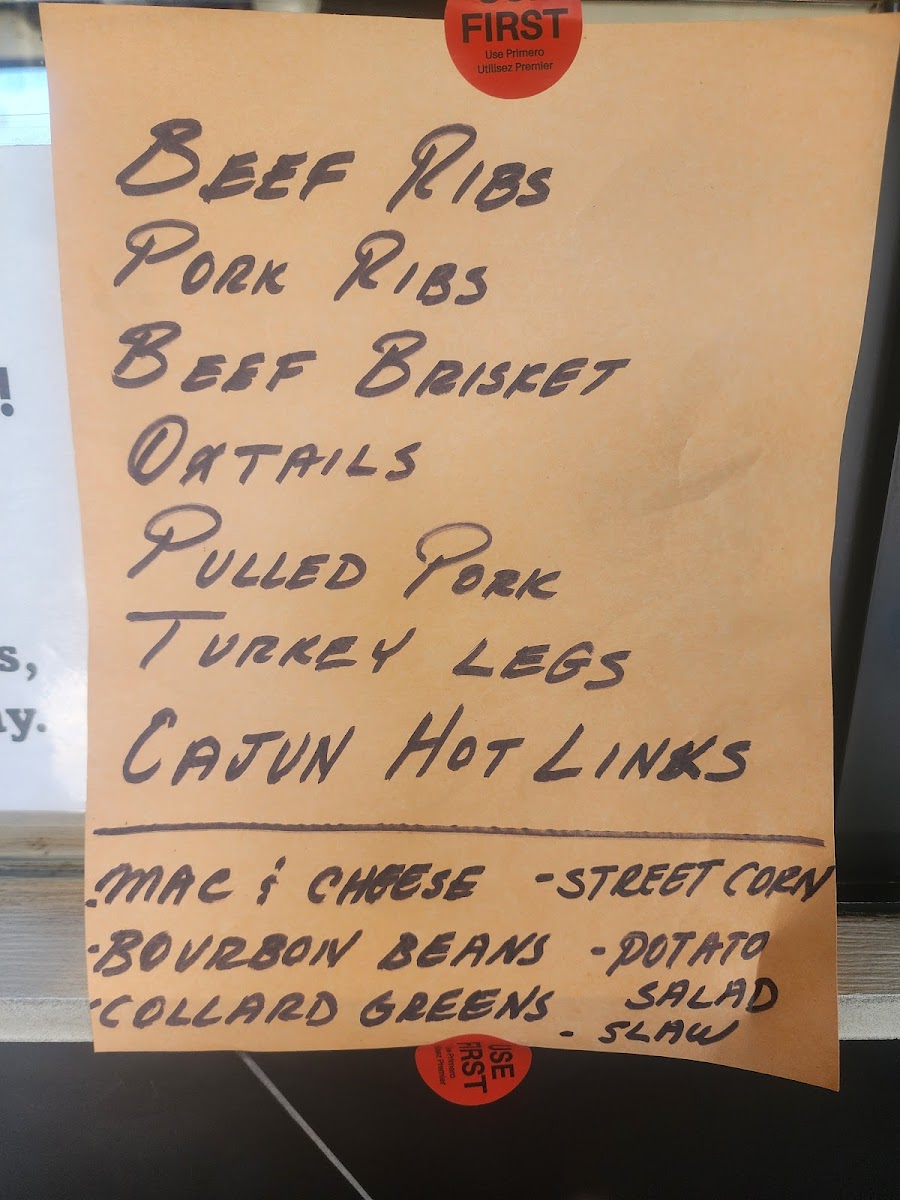 FIRST
Use Primero
Utilisez Premier
BEEF RIBS
PORK RIBS
BEEF BRISKET
OXTAILS
PULLED PORK
TURKEY LEGS
CAJUN HOT LINKS
-MAC & CHEESE -STREET CORN
-BOURBON BEANS -POTATO SALAD
-COLLARD GREENS - SLAW
USE
FIRST